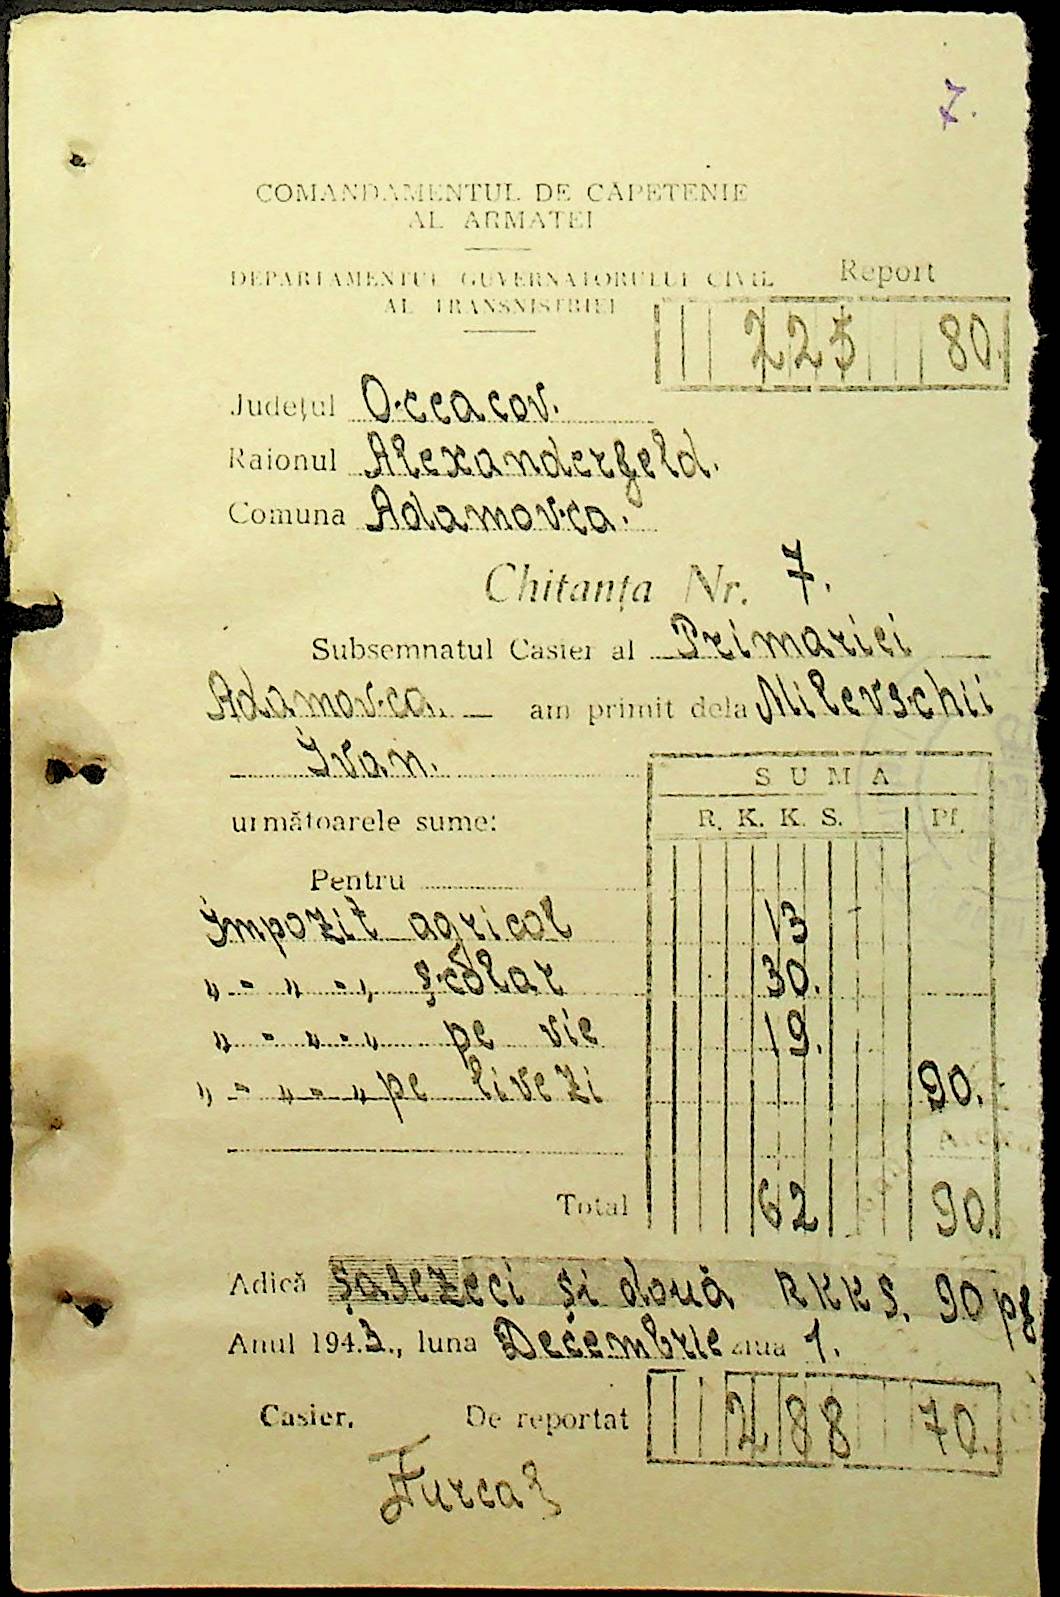 7.
COMANDAMENTUL DE CĂPETENIE
AL ARMATEI
DEPARTAMENTUL GUVERNATORULUI CIVIL
AL TRANSNISTRIEI
Report
225 80.
Județul Occeacov.
Raionul Alexanderfeld.
Comuna Adamovca.
Chitanța Nr. 7.
Subsemnatul Casier al Primariei
Adamovca. — am primit dela Milevschii
Ivan.
SUMA
următoarele sume: R. K. K. S. Pf.
Pentru
Impozit agricol 13 -
„ - „ - „ școlar 30.
„ - „ - „ pe vie 19.
„ - „ - „ pe livezi 90.
Total 62 90.
Adică șasezeci și două RKKS. 90 pf
Anul 1943., luna Decembrie ziua 1.
Casier, De reportat 288 70.